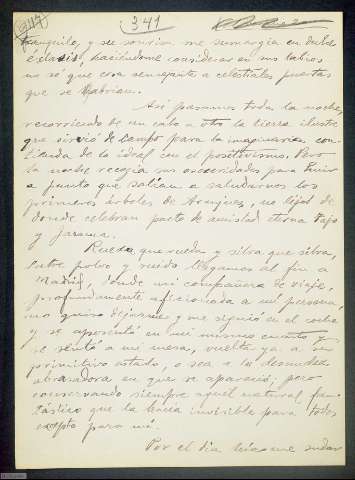 341
tranquilo, y su sonrisa me sumergía en dulce
éxtasis, haciéndome considerar en sus labios
no sé que cosa semejante a celestiales puertas
que se habrían.
Así pasamos toda la noche,
recorriendo de un cabo a otro la tierra ilustre
que sirvió de campo para la imaginaria con-
tienda de lo ideal con el positivismo. Pero
la noche recogía sus oscuridades para huir
a punto que salían a saludarnos los
primeros árboles de Aranjuez, no lejos de
donde celebran pacto de amistad eterna Tajo
y Jarama.
Rueda que rueda y silva que silva,
entre polvo y ruido, llegamos al fin a
Madrid, donde mi compañera de viaje,
profundamente aficionada a mi persona,
no quiso dejarme y me siguió en el coche
y se aposentó en mi mismo cuarto y
se sentó a mi mesa, vuelta ya a su
primitivo estado, o sea a la desnudez
abrasadora en que se apareció; pero
conservando siempre aquel natural fan-
tástico que la hacía invisible para todos
excepto para mí.
Por el día hízome sudar